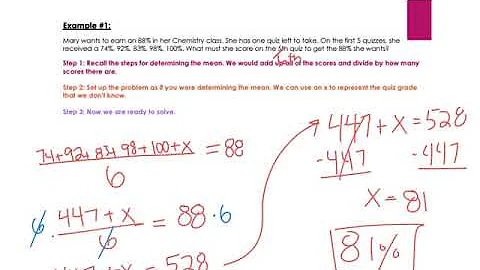 Example #1:
Mary wants to earn an 88% in her Chemistry class. She has one quiz left to take. On the first 5 quizzes, she
received a 74%, 92%, 83%, 98%, 100%. What must she score on the 5th quiz to get the 88% she wants?
Step 1: Recall the steps for determining the mean. We would add up all of the scores and divide by how many
scores there are.
Step 2: Set up the problem as if you were determining the mean. We can use an x to represent the quiz grade
that we don't know.
Step 3: Now we are ready to solve.
74+92+83+98+100+X = 88
6
6 · 447 + X = 88 · 6
6
447 + X = 528
447 + X = 528
-447 -447
X = 81
81%